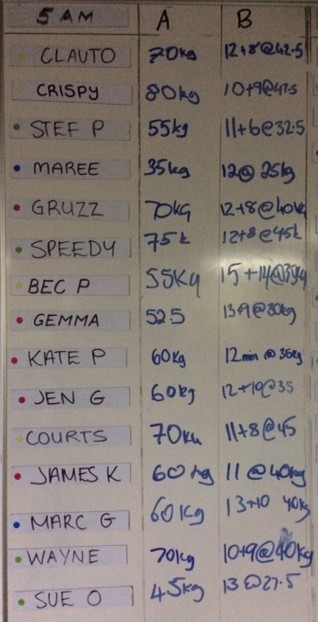 5 AM A B
CLAUTO 70kg 12+8@42.5
CRISPY 80kg 10+9@47.5
STEF P 55kg 11+6@32.5
MAREE 35kg 12@25kg
GRUZZ 70kg 12+8@40kg
SPEEDY 75k 12+8@45k
BEC P 55kg 15+14@35kg
GEMMA 52.5 13+9@30kg
KATE P 60kg 12 min @ 36kg
JEN G 60kg 12+10@35
COURTS 70kg 11+8@45
JAMES K 60kg 11@40kg
MARC G 60kg 13+10 40kg
WAYNE 70kg 10+9@40kg
SUE O 45kg 13@27.5